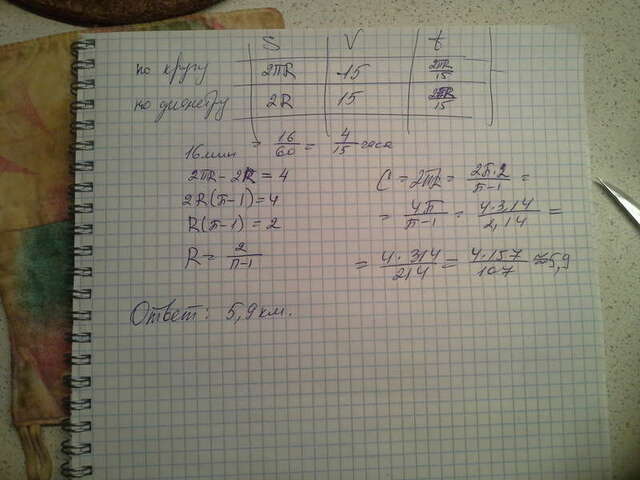 S V t
по кругу 2πR 15 2πR/15
по диаметру 2R 15 2R/15
16 мин = 16/60 = 4/15 часа
2πR - 2R = 4
2R(π-1)=4
R(π-1) = 2
R = 2/(π-1)
C = 2πR = 2π·2/(π-1) =
= 4π/(π-1) = 4·3,14/2,14 =
= 4·314/214 = 4·157/107 ≈ 5,9
Ответ: 5,9 км.